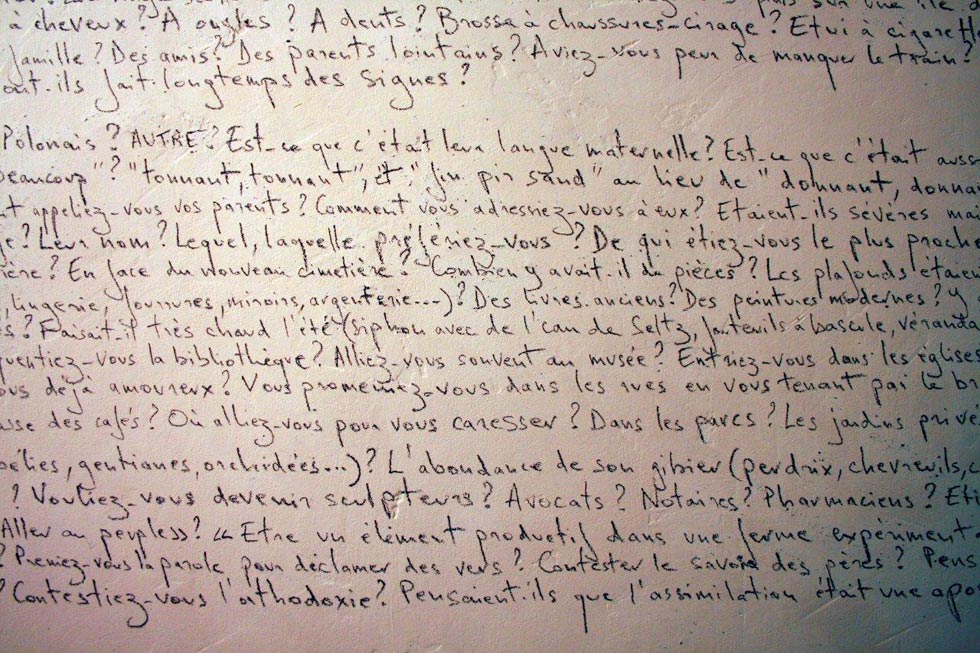 puis sur une île
à cheveux ? A ongles ? A dents ? Brosse à chaussures-cirage ? Etui à cigarette
famille ? Des amis ? Des parents lointains ? Aviez-vous peur de manquer le train ?
ont-ils fait longtemps des signes ?
Polonais ? AUTRE ? Est-ce que c'était leur langue maternelle ? Est-ce que c'était auss
beaucoup" ? "tonnant, tonnant", et "fin pir sand" au lieu de "donnant, donna
nt appeliez-vous vos parents ? Comment vous adressiez-vous à eux ? Etaient-ils sévères ma
ge ? Leur nom ? Lequel, laquelle préfériez-vous ? De qui étiez-vous le plus proche
ière ? En face du nouveau cimetière ? Combien y avait-il de pièces ? Les plafonds étaien
, lingerie, fourrures, miroirs, argenterie...) ? Des livres anciens ? Des peintures modernes ? Y
es ? Faisait-il très chaud l'été (siphon avec de l'eau de Seltz, fauteuils à bascule, véranda
quentiez-vous la bibliothèque ? Alliez-vous souvent au musée ? Entriez-vous dans les églises
ous déjà amoureux ? Vous promeniez-vous dans les rues en vous tenant par le br
asse des cafés ? Où alliez-vous pour vous caresser ? Dans les parcs ? Les jardins privé
bélies, gentianes, orchidées...) ? L'abondance de son gibier (perdrix, chevreuils, c
? Vouliez-vous devenir sculpteurs ? Avocats ? Notaires ? Pharmaciens ? Etu
Aller au peupless ? « Etre un élément productif dans une ferme expériment
? Preniez-vous la parole pour déclamer des vers ? Contester le savoir des pères ? Pens
? Contestiez-vous l'othodoxie ? Pensaient-ils que l'assimilation était une apo